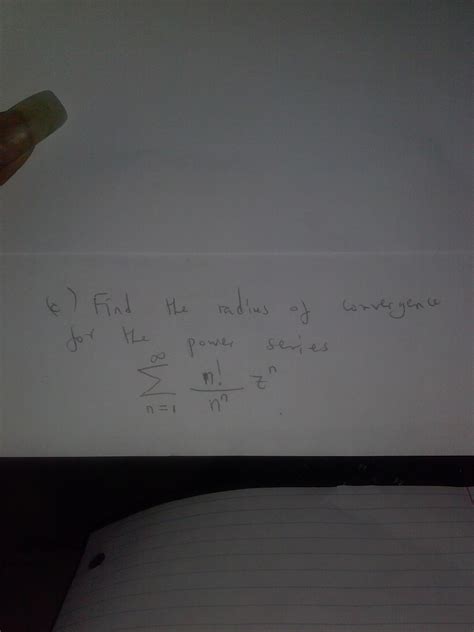 k) Find the radius of convergence
for the power series
∞
∑ n!/nⁿ zⁿ
n=1